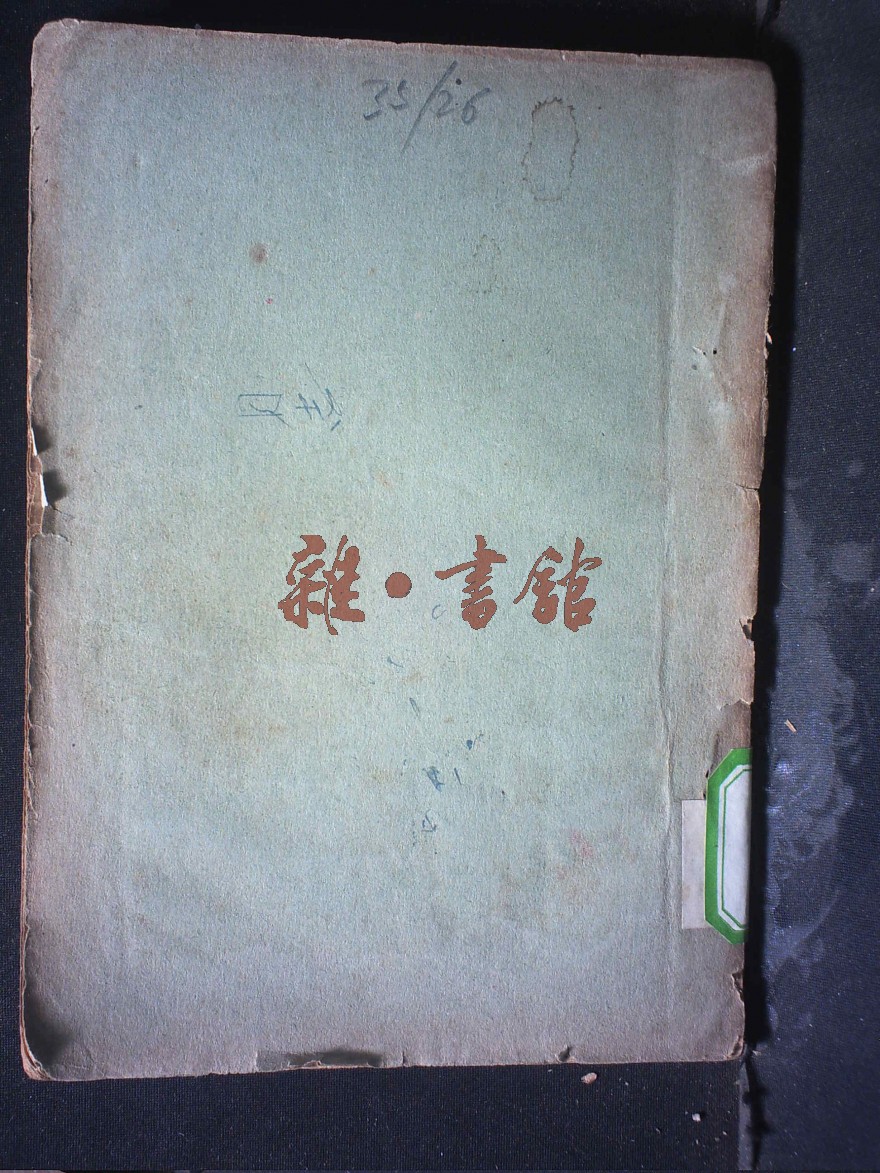 35/26
雜·書館